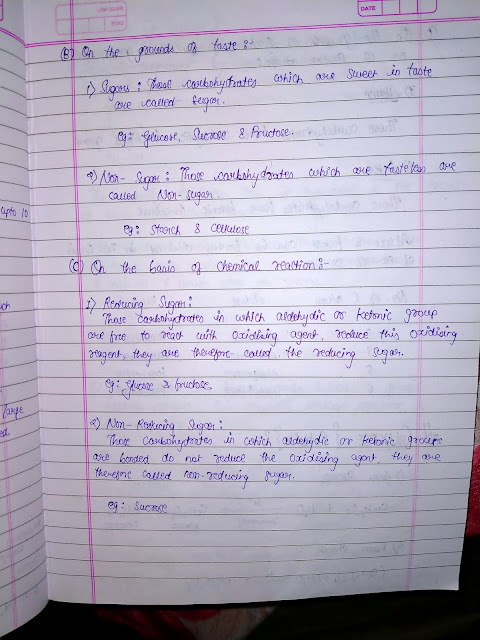 DATE
(B) On the grounds of taste :-
1) Sugars : Those carbohydrates which are sweet in taste
are called sugar.
eg: Glucose, Sucrose & Fructose.
2) Non- Sugar : Those carbohydrates which are tasteless are
called Non-sugar.
upto 10
eg: Starch & Cellulose
(C) On the basis of chemical reaction :-
1) Reducing Sugar :
Those carbohydrates in which aldehydic or ketonic group
are free to react with oxidising agent, reduce this oxidising
reagent, they are therefore called the reducing sugar.
eg: Glucose & fructose
large
2) Non- Reducing Sugar :
Those Carbohydrates in which aldehydic or ketonic groups
are bonded do not reduce the oxidising agent, they are
therefore called non-reducing sugar.
eg: Sucrose